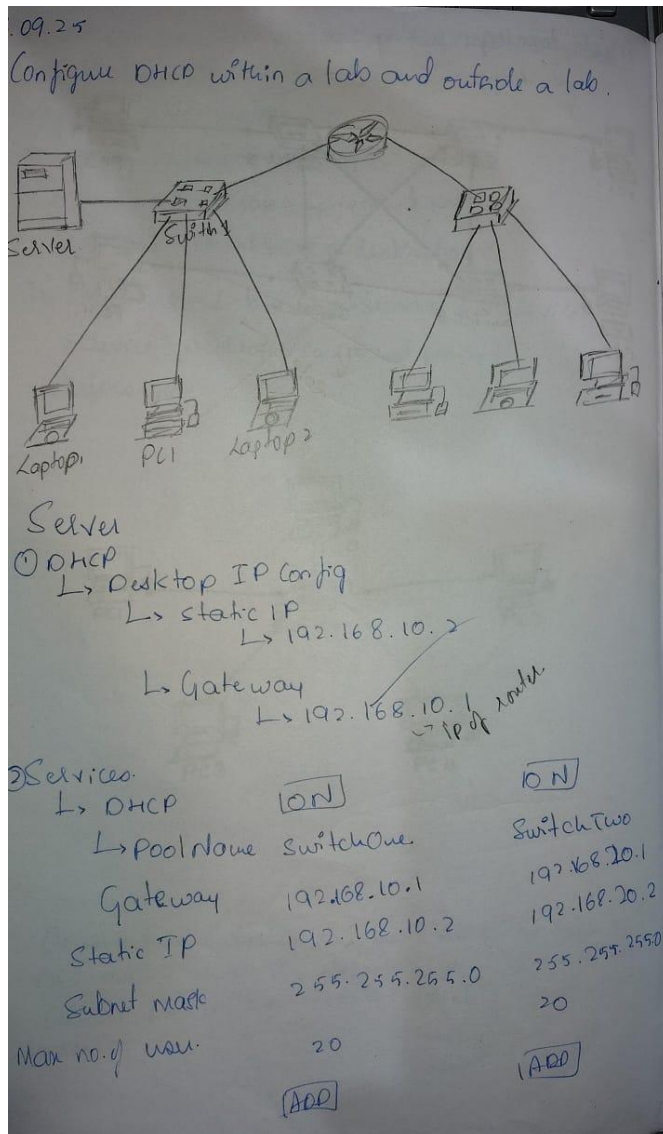 .09.25
Configure DHCP within a lab and outside a lab.
Server
Switch 1
Laptop1
PC1
Laptop 2
Server
① DHCP
↳ Desktop IP Config
↳ static IP
↳ 192.168.10.2
↳ Gateway
↳ 192.168.10.1
↳ IP of router
② Services.
↳ DHCP ON ON
↳ Pool Name SwitchOne. SwitchTwo
Gateway 192.168.10.1 192.168.20.1
Static IP 192.168.10.2 192.168.20.2
Subnet mask 255.255.255.0 255.255.2550
Max no. of user. 20 20
ADD ADD